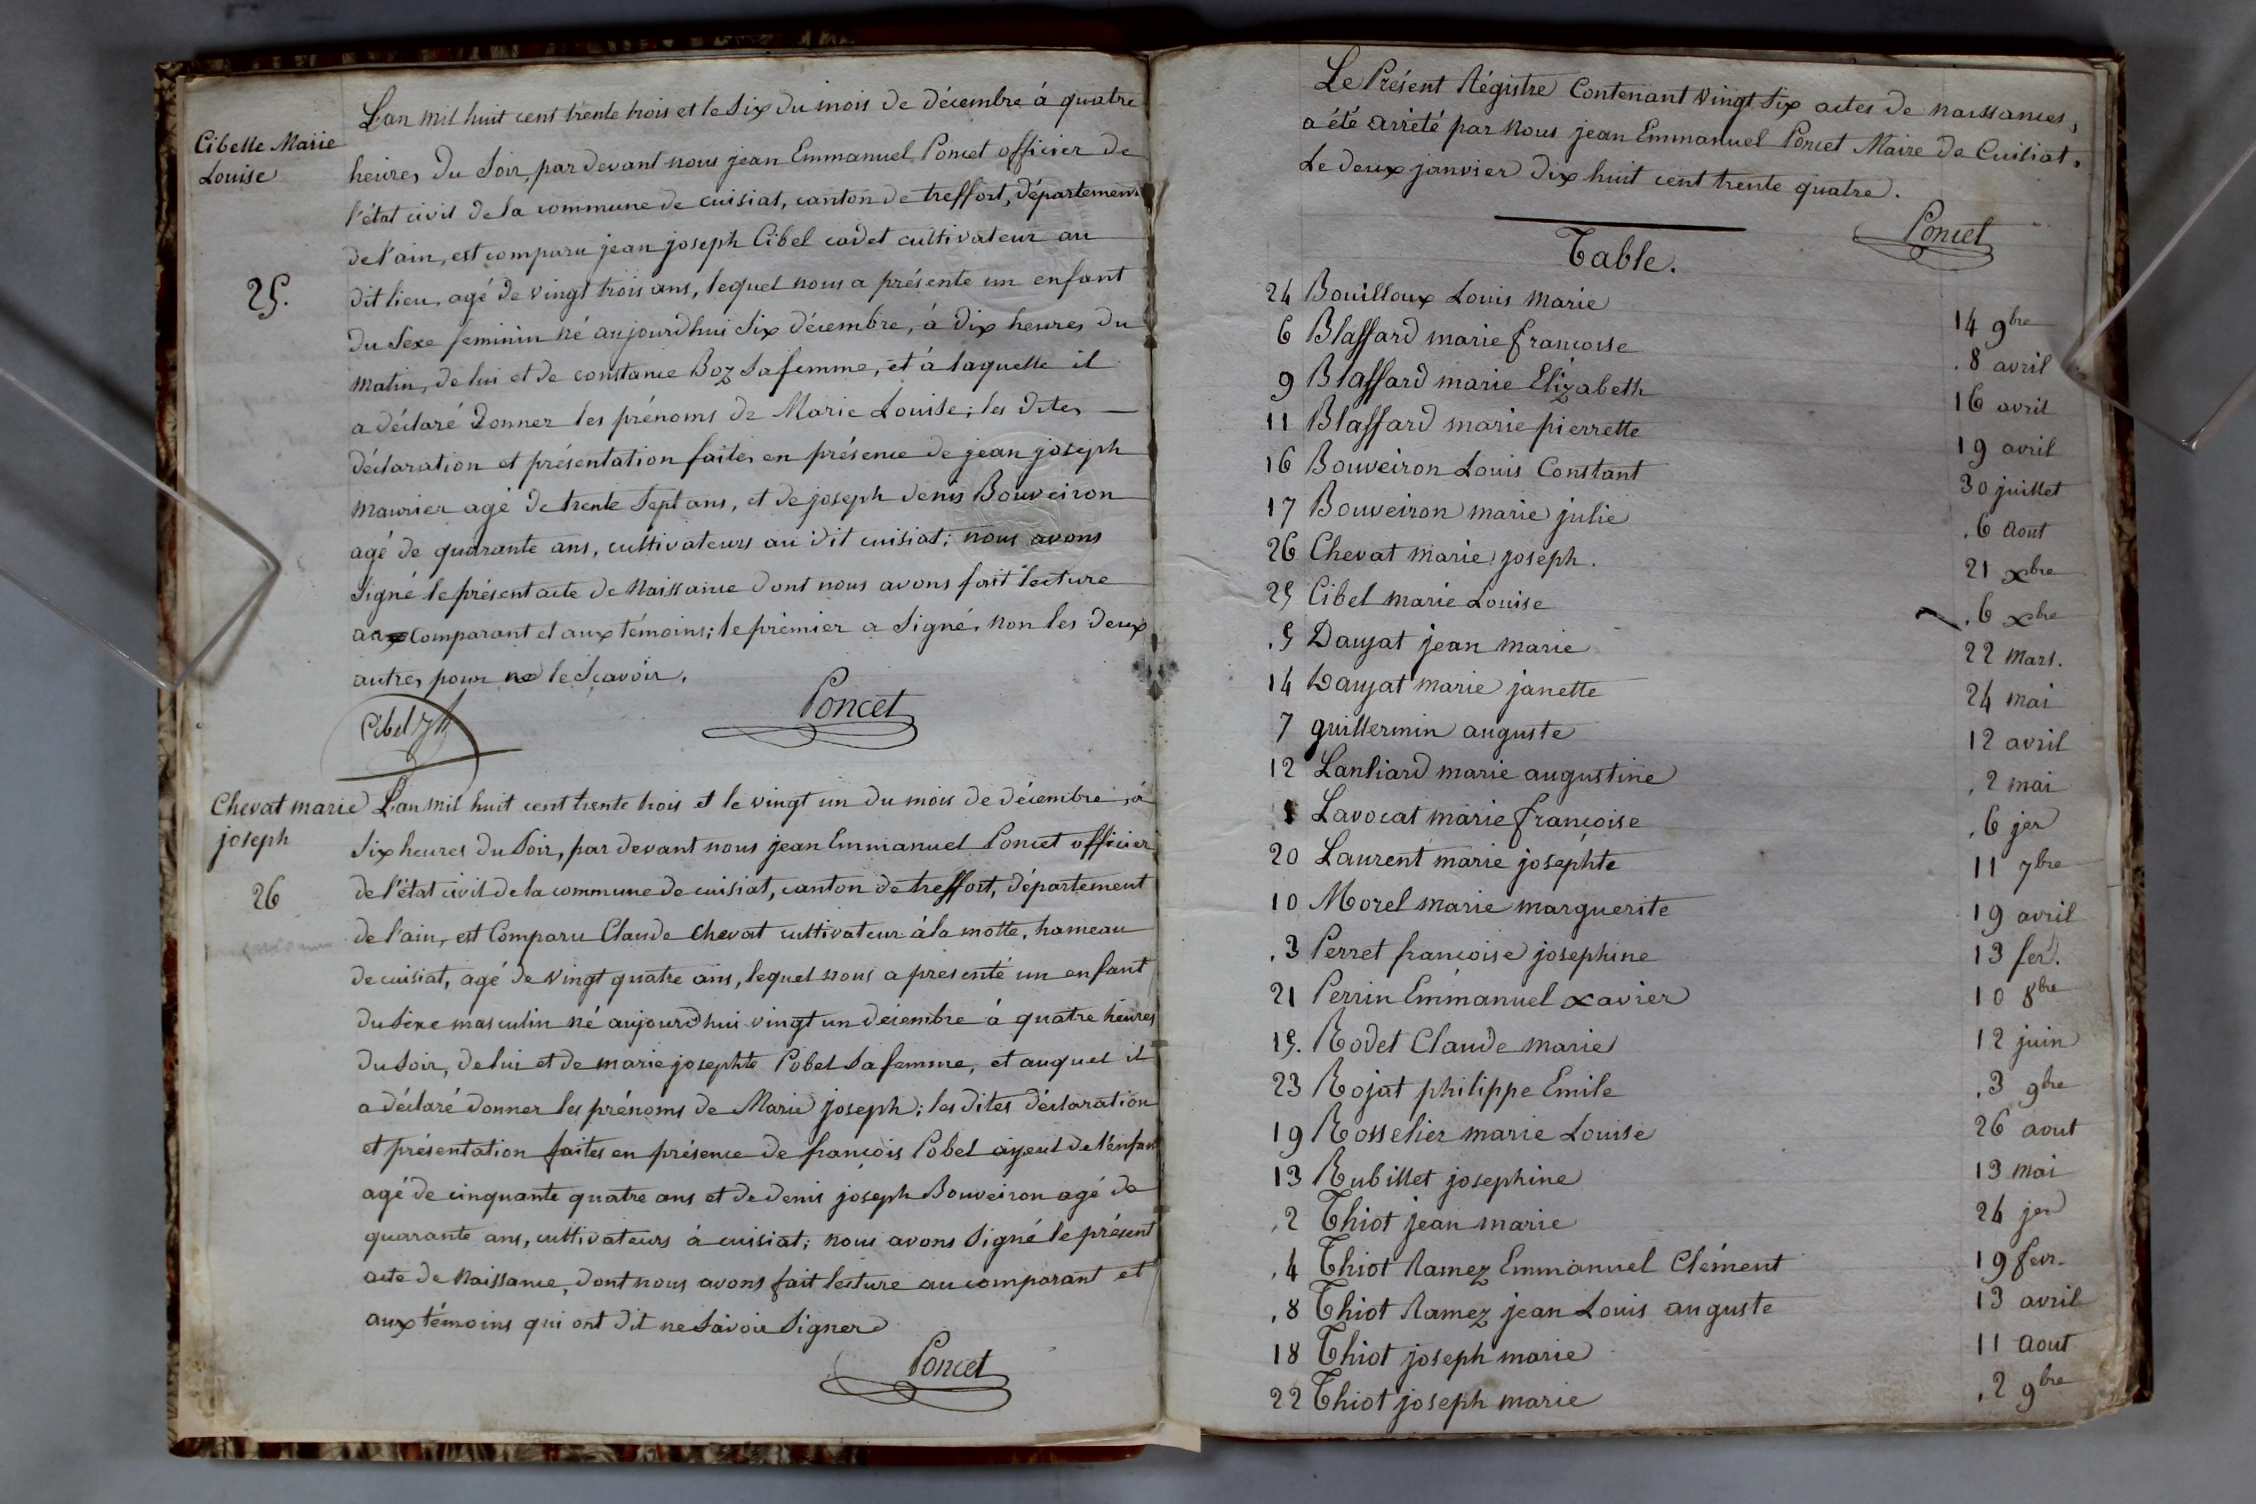 Cibelle Marie
Louise
25.
L'an mil huit cent trente trois et le six du mois de décembre à quatre
heures du soir, par devant nous jean Emmanuel Poncet officier de
l'état civil de la commune de cuisiat, canton de treffort, département
de l'ain, est comparu jean joseph Cibel cadet cultivateur au
dit lieu, agé de vingt trois ans, lequel nous a présenté un enfant
du sexe feminin né aujourdhui six décembre, à dix heures du
matin, de lui et de constance Boz sa femme, et à laquelle il
a déclaré donner les prénoms de Marie Louise; les dites
déclaration et présentation faites en présence de jean joseph
maurier agé de trente sept ans, et de joseph denis Bouveiron
agé de quarante ans, cultivateurs au dit cuisiat; nous avons
signé le présent acte de naissance dont nous avons fait lecture
aux comparant et aux témoins; le prémier a signé, non les deux
autres pour ne le sçavoir.
Cibel
Poncet
Chevat marie
joseph
26
L'an mil huit cent trente trois et le vingt un du mois de décembre, à
six heures du soir, par devant nous jean Emmanuel Poncet officier
de l'état civil de la commune de cuisiat, canton de treffort, département
de l'ain, est Comparu Claude Chevat cultivateur à la motte, hameau
de cuisiat, agé de vingt quatre ans, lequel nous a présenté un enfant
du sexe masculin né aujourd'hui vingt un décembre à quatre heures
du soir, de lui et de marie josephte Pobel sa femme, et auquel il
a déclaré donner les prénoms de Marie joseph; les dites déclaration
et présentation faites en présence de françois Pobel ayeul de l'enfant
agé de cinquante quatre ans et de denis joseph Bouveiron agé de
quarante ans, cultivateurs à cuisiat; nous avons signé le présent
acte de naissance, dont nous avons fait lecture au comparant et
aux témoins qui ont dit ne savoir signer
Poncet
Le Présent Régistre Contenant vingt six actes de naissances,
a été arrêté par nous jean Emmanuel Poncet Maire de Cuisiat,
Le deux janvier dix huit cent trente quatre.
Poncet
Table.
24 Bouilloux Louis Marie 14 9bre
6 Blaffard marie françoise .8 avril
9 Blaffard marie Elizabeth 16 avril
11 Blaffard marie pierrette 19 avril
16 Bouveiron Louis Constant 30 juillet
17 Bouveiron marie julie .6 Aout
26 Chevat marie joseph. 21 xbre
25 Cibel marie Louise .6 xbre
.5 Daujat jean marie 22 mars.
14 Daujat marie janette 24 mai
7 guillermin auguste 12 avril
12 Lanliard marie augustine .2 mai
1 Lavocat marie françoise .6 jer
20 Laurent marie josephte 11 7bre
10 Morel marie marguerite 19 avril
.3 Perret françoise josephine 13 fer.
21 Perrin Emmanuel xavier 10 8bre
15. Rodet Claude marie 12 juin
23 Rojat philippe Emile .3 9bre
19 Rosselier marie Louise 26 aout
13 Rubillet josephine 13 mai
.2 Thiot jean marie 24 jer
.4 Thiot Ramez Emmanuel Clément 19 fevr.
.8 Thiot Ramez jean Louis auguste 13 avril
18 Thiot joseph marie 11 Aout
22 Thiot joseph marie .2 9bre